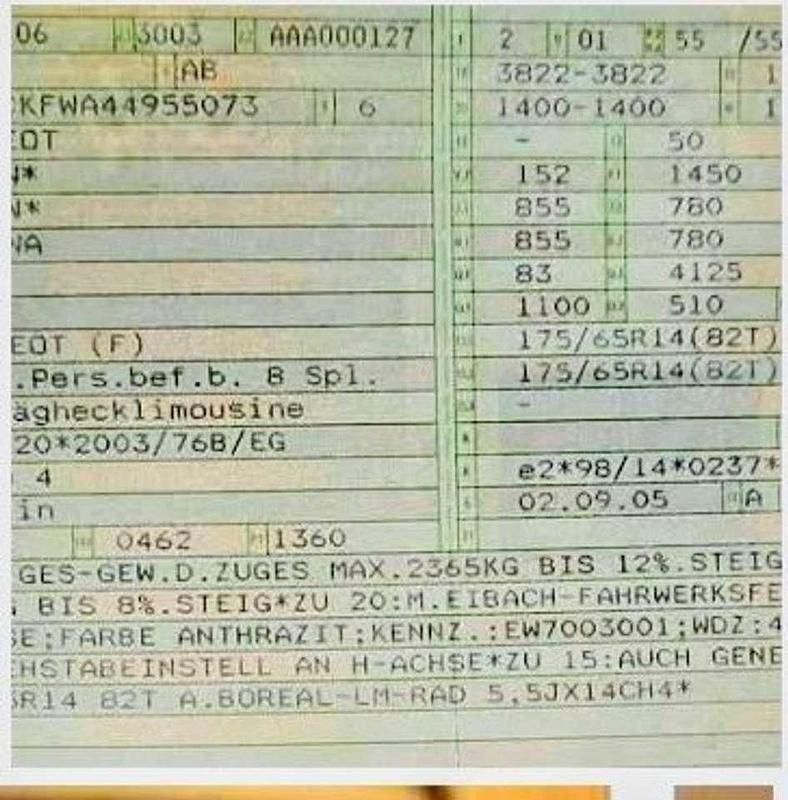 06 3003 AAA000127 2 01 55 /55
AB 3822-3822 1
KFWA44955073 6 1400-1400 1
EOT - 50
N* 152 1450
N* 855 780
NA 855 780
83 4125
1100 510
EOT (F) 175/65R14(82T)
.Pers.bef.b. 8 Spl. 175/65R14(82T)
äghecklimousine -
20*2003/76B/EG
4 e2*98/14*0237*
in 02.09.05 A
0462 1360
GES-GEW.D.ZUGES MAX.2365KG BIS 12%.STEIG
BIS 8%.STEIG*ZU 20:M.EIBACH-FAHRWERKSFE
SE;FARBE ANTHRAZIT;KENNZ.:EW7003001;WDZ:4
CHSTABEINSTELL AN H-ACHSE*ZU 15:AUCH GENE
5R14 82T A.BOREAL-LM-RAD 5,5JX14CH4*